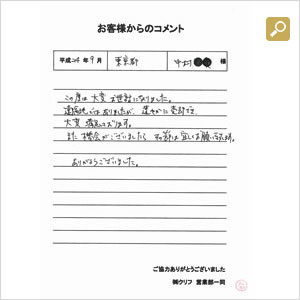 お客様からのコメント
平成24年9月 東京都 中村●● 様
この度は大変お世話になりました。
遠隔地ではありましたが、速やかに売却でき
大変満足しております。
また機会がございましたら、その節は宜しくお願い致します。
ありがとうございました。
ご協力ありがとうございました
㈱クリフ 営業部一同